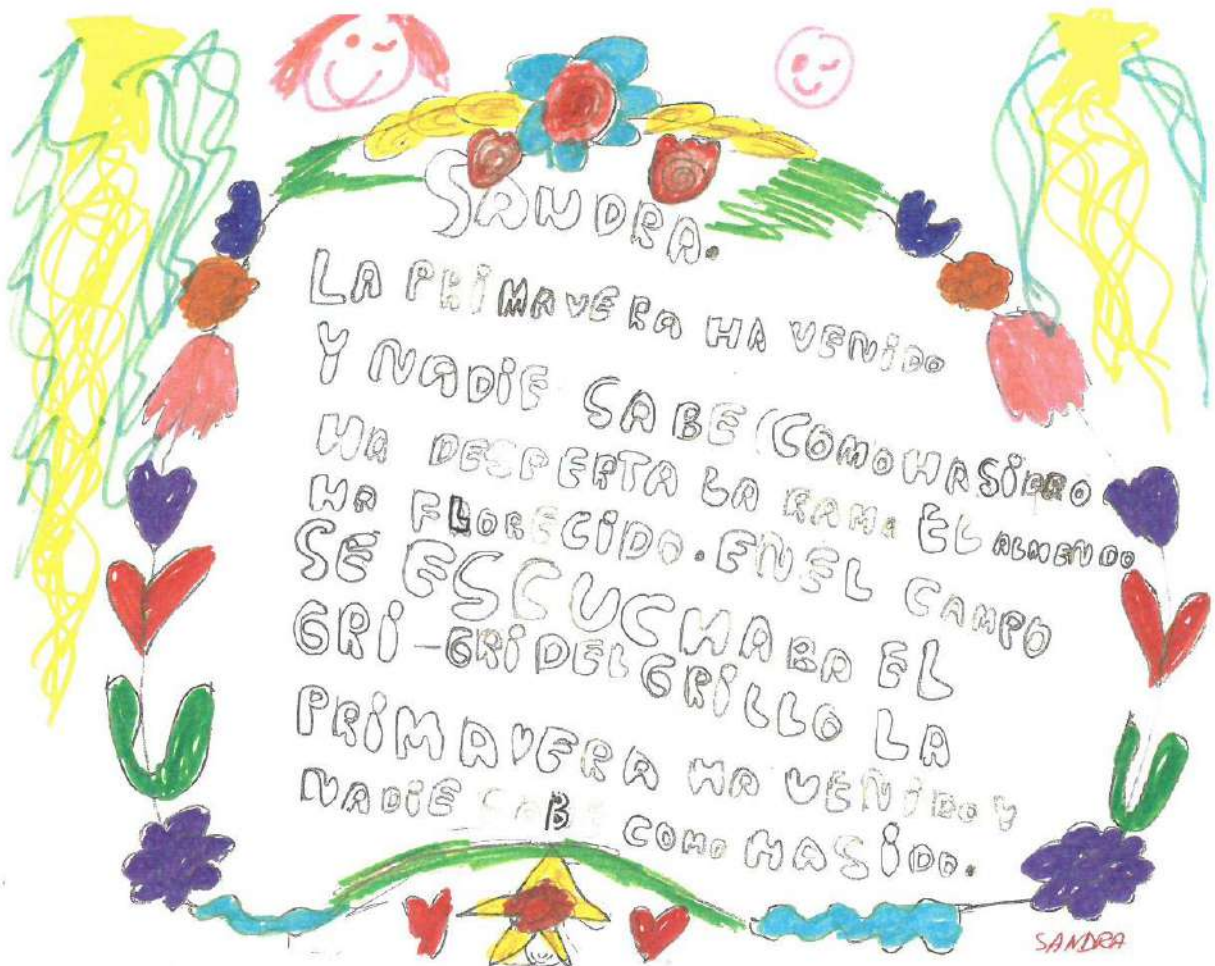 SANDRA.
LA PRIMAVERA HA VENIDO
Y NADIE SABE COMO HA SIDO
HA DESPERTA LA RAMA EL ALMENDO
HA FLORECIDO. EN EL CAMPO
SE ESCUCHABA EL
GRI-GRI DEL GRILLO LA
PRIMAVERA HA VENIDO Y
NADIE SABE COMO HA SIDO.
SANDRA